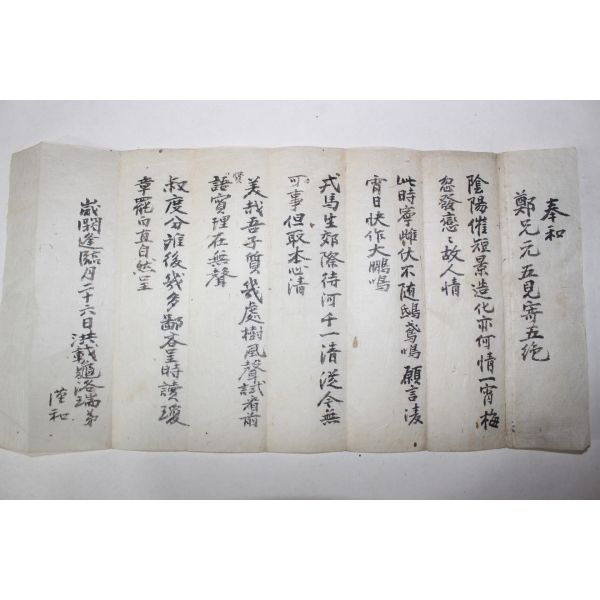 奉和
鄭兄元五見寄五絶
陰陽催短景造化亦何情一宵梅
忽發戀〻故人情
此時寧雌伏不随鴟鳶鳴願言凌
霄日快作大鵬鳴
戎馬生郊際待河千一清從令無
可事但取本心清
美哉吾子質幾處樹風聲試看前
賢語實理在無聲
叔度分離後幾多鄙吝呈時讀瓊
章罷向直自然呈
歲閼逢臨月二十六日洪載 洛端弟
謹和